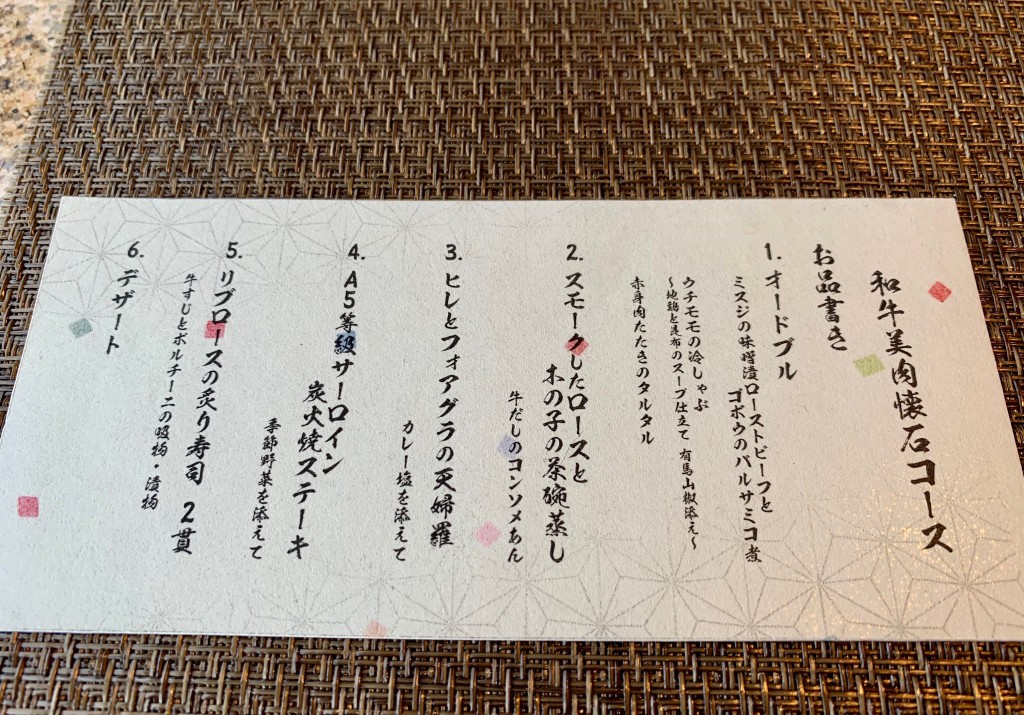 和牛美肉懐石コース
お品書き
1. オードブル
ミスジの味噌漬ローストビーフと
ゴボウのバルサミコ煮
ウチモモの冷しゃぶ
〜地鶏と昆布のスープ仕立て 有馬山椒添え〜
赤身肉たたきのタルタル
2. スモークしたロースと
木の子の茶碗蒸し
牛だしのコンソメあん
3. ヒレとフォアグラの天婦羅
カレー塩を添えて
4. A5等級サーロイン
炭火焼ステーキ
季節野菜を添えて
5. リブロースの炙り寿司 2貫
牛すじとポルチーニの吸物・漬物
6. デザート